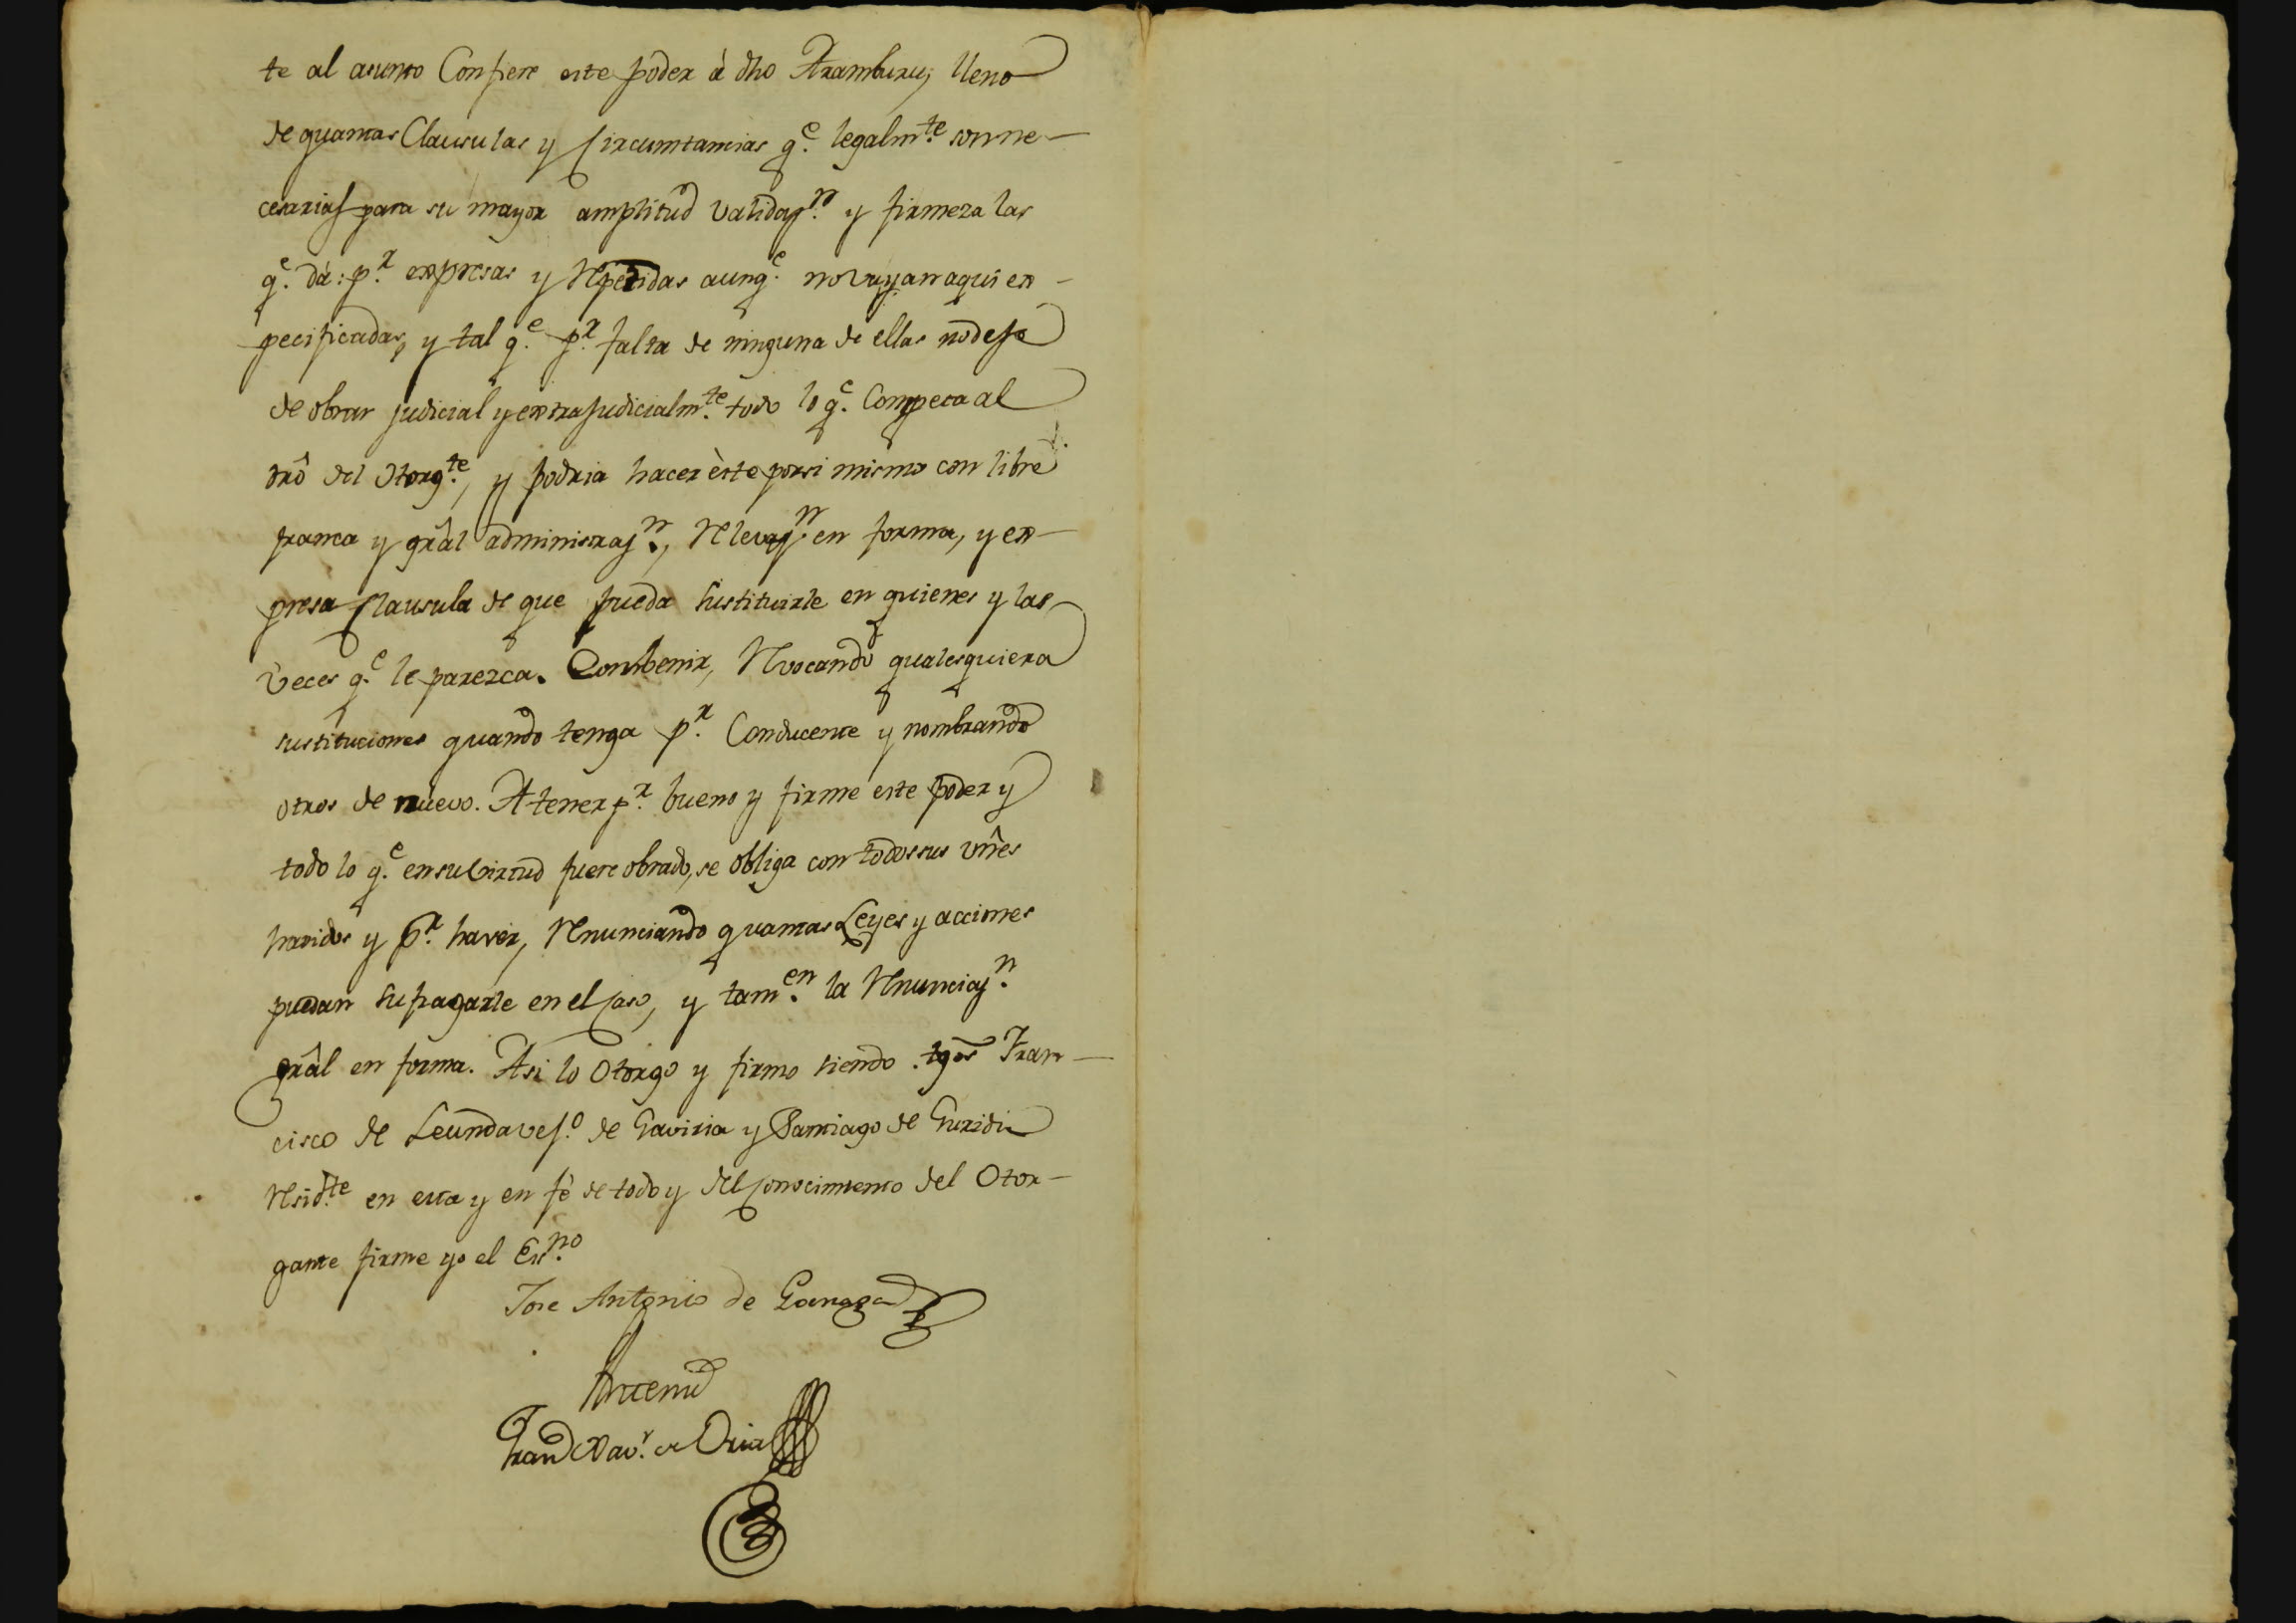 te al asunto Confiere este poder à dho Aramburu, lleno
de quantas Clausulas y Circumstancias q.e legalm.te son ne-
cesarias para su mayor amplitud validaz.n y firmeza las
q.e dá: p.r expresas y Repetidas aunq.e no vayan aqui ex-
pecificadas, y tal q.e p.r falta de ninguna de ellas no deje
de obrar judicial y extrajudicialm.te todo lo q.e Competa al
dró del Otorg.te, y podria hacer èste por si mismo con libre
franca y grâl administraz.n, Relevaz.n en forma, y ex-
presa Clausula de que pueda sustituirle en quienes y las
veces q.e le parezca. Combenir, Revocando qualesquiera
sustituciones quando tenga p.r Conducente y nombrando
otros de nuevo. A tener p.r bueno y firme este poder y
todo lo q.e en su virtud fuere obrado, se obliga con todos sus vnês
havidos y p.r haver, Renunciando quantas Leyes y acciones
puedan sufragarle en el Caso, y tam.en la Renunciaz.n
grâl en forma. Asi lo Otorgo y firmo siendo tgos Fran-
cisco de Leunda vez.o de Gaviria y Santiago de Guridi
Resid.te en esta y en fè de todo y del Conocimiento del Otor-
gante firme yo el Ess.no
Jose Antonio de
Antemi
Fran.co Xav.r de Oria